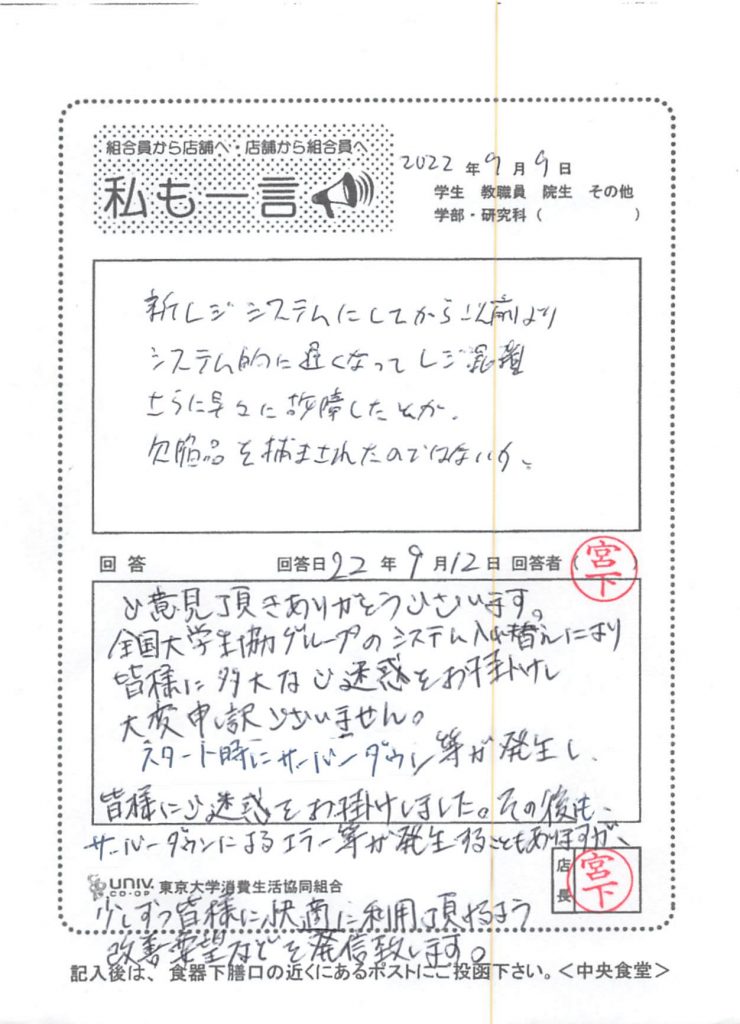 組合員から店舗へ・店舗から組合員へ
私も一言
2022 年 9 月 9 日
学生 教職員 院生 その他
学部・研究科( )
新レジシステムにしてから以前より
システム的に遅くなってレジ混雑
さらに早々に故障したとか、
欠陥品を捕まされたのではないか、
回答 回答日 22 年 9 月 12 日 回答者( 宮下 )
ご意見頂きありがとうございます。
全国大学生協グループのシステム入れ替えにより
皆様に多大なご迷惑をお掛けし
大変申し訳ございません。
スタート時にサーバーダウン等が発生し、
皆様にご迷惑をお掛けしました。その後も、
サーバーダウンによるエラー等が発生することもありますが、
UNIV. CO-OP 東京大学消費生活協同組合
店長 宮下
少しずつ皆様に快適に利用頂けるよう
改善要望などを発信致します。
記入後は、食器下膳口の近くにあるポストにご投函下さい。<中央食堂>